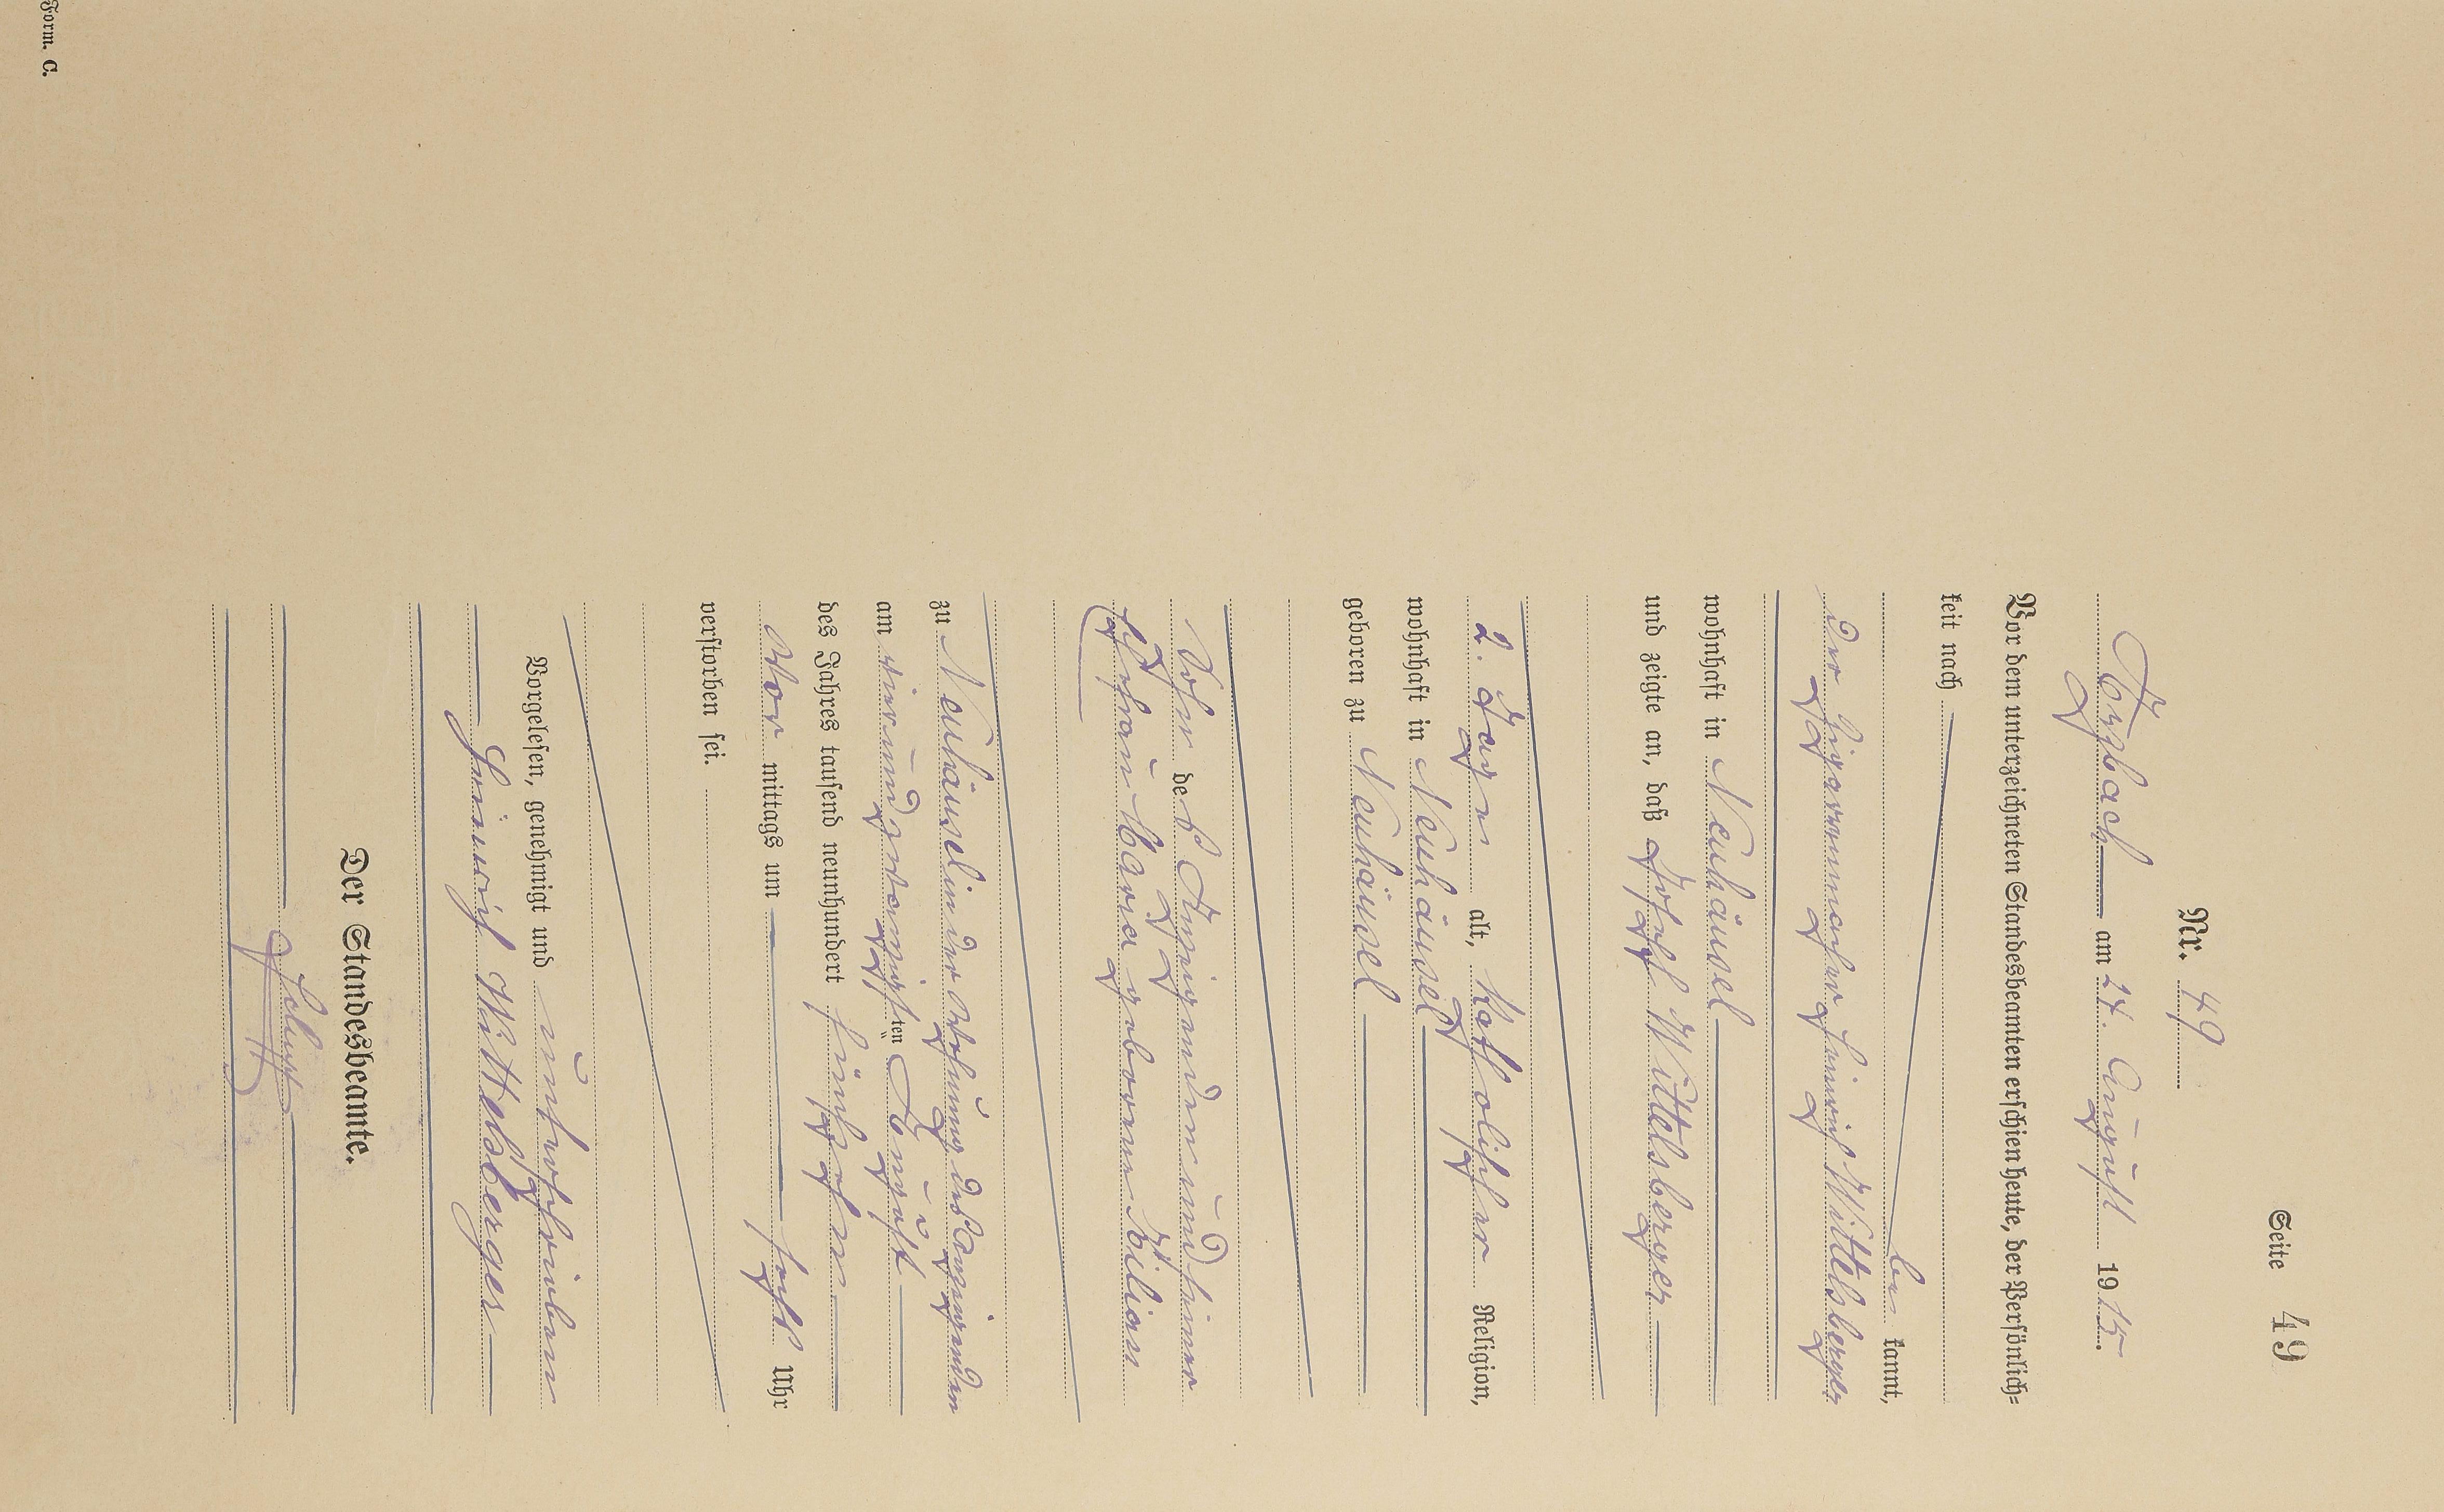 Seite 49
Nr. 49
Törzbach am 24. August 1915.
Vor dem unterzeichneten Standesbeamten erschien heute, der Persönlich-
keit nach
be kannt,
der Zigarrenmacher Heinrich Wittelsberger
wohnhaft in Neuhäusel
und zeigte an, daß Joseph Wittelsberger
2. Tage alt, katholischer Religion,
wohnhaft in Neuhäusel
geboren zu Neuhäusel
Sohn des Anzeigenden und seiner
Ehefrau Maria geborene Kilian
zu Neuhäusel in der Wohnung des Anzeigenden
am vierundzwanzigsten August
des Jahres tausend neunhundert fünfzehn
Vor mittags um sechs Uhr
verstorben sei.
Vorgelesen, genehmigt und unterschrieben
Heinrich Wittelsberger
Der Standesbeamte.
Form. C.